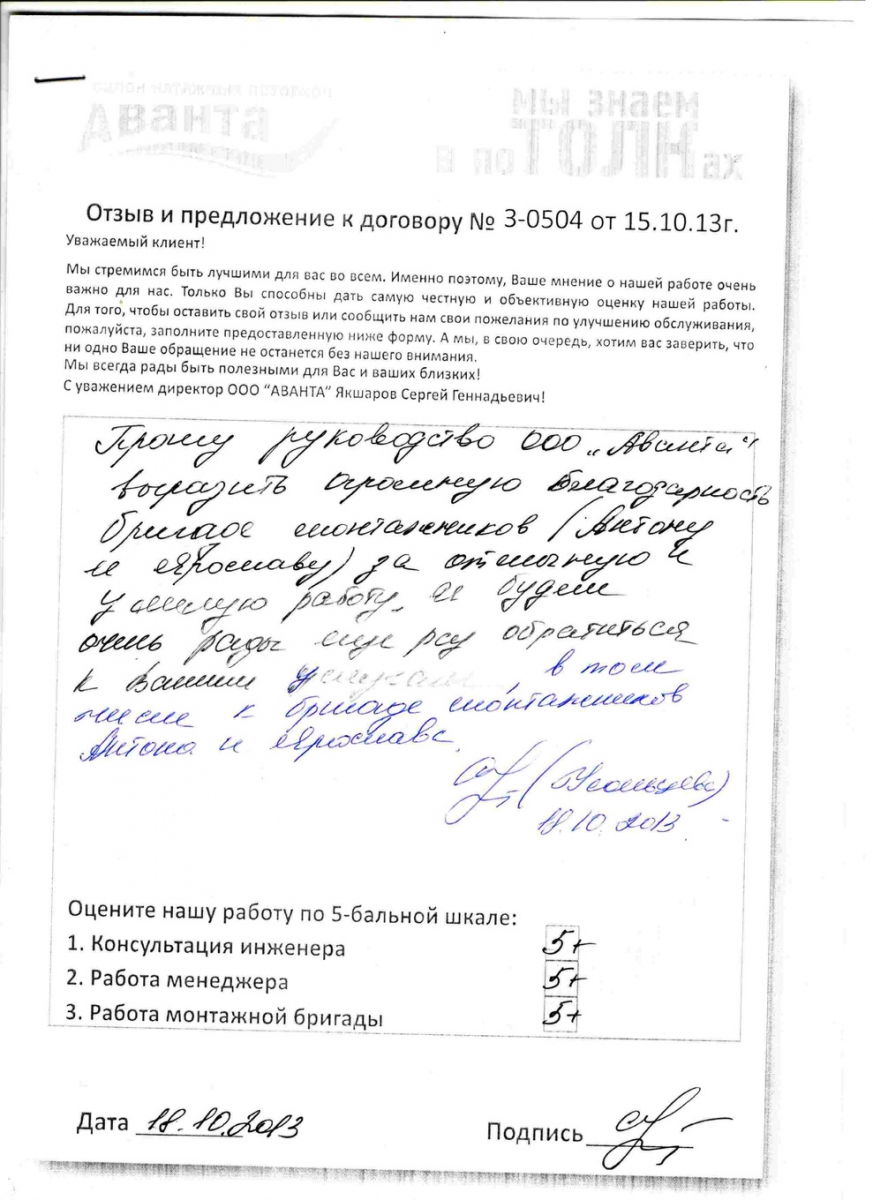 Аванта
мы знаем
Отзыв и предложение к договору № 3-0504 от 15.10.13г.
Уважаемый клиент!
Мы стремимся быть лучшими для вас во всем. Именно поэтому, Ваше мнение о нашей работе очень
важно для нас. Только Вы способны дать самую честную и объективную оценку нашей работы.
Для того, чтобы оставить свой отзыв или сообщить нам свои пожелания по улучшению обслуживания,
пожалуйста, заполните предоставленную ниже форму. А мы, в свою очередь, хотим вас заверить, что
ни одно Ваше обращение не останется без нашего внимания.
Мы всегда рады быть полезными для Вас и ваших близких!
С уважением директор ООО "АВАНТА" Якшаров Сергей Геннадьевич!
Прошу руководство ООО „Аванта"
выразить огромную благодарность
бригаде монтажников (Антону
и Ярославу) за отличную и
умелую работу, и будем
очень рады еще раз обратиться
к Вашим услугам, в том
числе к бригаде монтажников
Антона и Ярослава
(Усольцева)
18.10.2013
Оцените нашу работу по 5-бальной шкале:
1. Консультация инженера 5+
2. Работа менеджера 5+
3. Работа монтажной бригады 5+
Дата 18.10.2013 Подпись